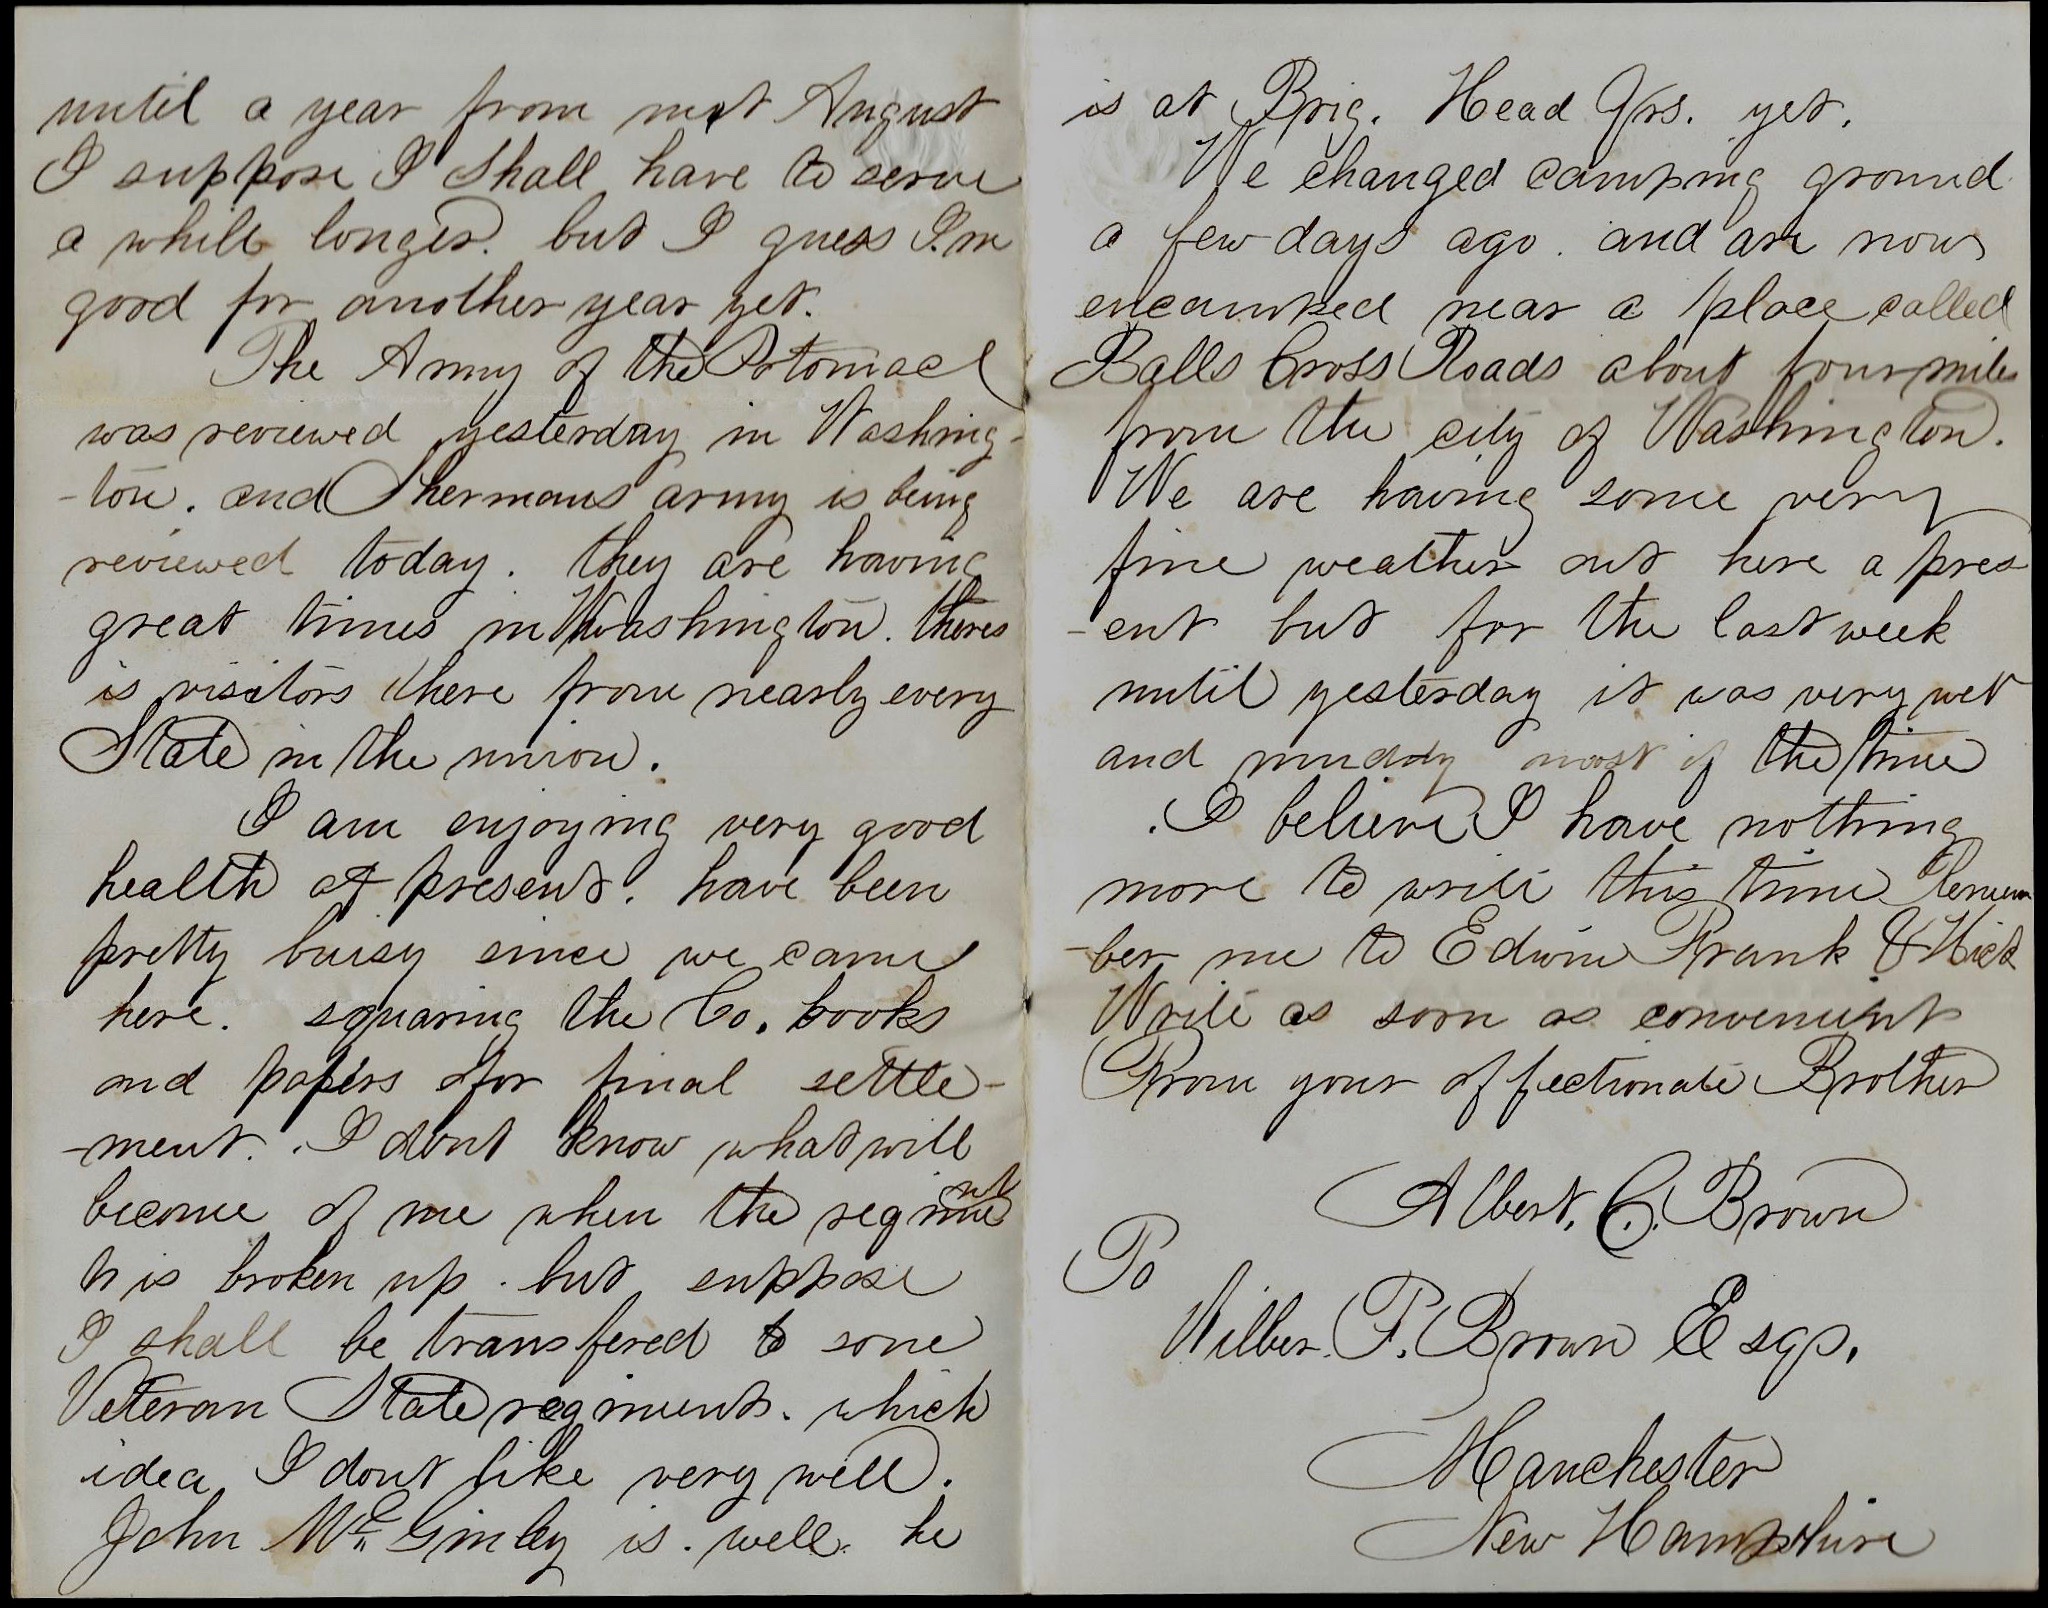 until a year from next August
I suppose I Shall have to serve
a while longer. but I guess I.m
good for another year yet.
The Army of the Potomac
was reviewed yesterday in Washing-
-ton. and Shermans army is being
reviewed today. they are having
great times in Washington. theres
is visitors there from nearly every
State in the union.
I am enjoying very good
health at present. have been
pretty busy since we came
here. squaring the Co. books
and papers for final settle-
-ment. I dont know what will
become of me when the regime
nt
h is broken up. but suppose
I shall be transfered to some
Veteran State regiments. which
idea I dont like very well.
John McGinley is. well. he
is at Brig. Head Qrs. yet.
We changed camping ground
a few days ago. and are now
encamped near a place called
Balls Cross Roads about four miles
from the city of Washington.
We are having some very
fine weather out here a pres
-ent but for the last week
until yesterday it was very wet
and muddy most of the time
. I believe I have nothing
more to write this time Remem
-ber me to Edwin Frank & Nick
Write as soon as convenient
From your affectionate Brother
Albert. C. Brown
To
Wilber. F. Brown Esqr.
Manchester
New Hampshire